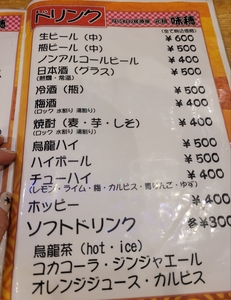 ドリンク 味穂
(全て税込価格)
生ビール（中） ￥600
瓶ビール（中） ￥500
ノンアルコールビール ￥400
日本酒（グラス） ￥500
(熱燗・常温)
冷酒（瓶） ￥500
梅酒 ￥400
(ロック 水割り 湯割り)
焼酎（麦・芋・しそ） ￥400
(ロック 水割り 湯割り)
烏龍ハイ ￥500
ハイボール ￥500
チューハイ ￥400
(レモン・ライム・梅・カルピス・青りんご・ゆず)
ホッピー ￥400
ソフトドリンク 各￥300
烏龍茶（hot・ice）
コカコーラ・ジンジャエール
オレンジジュース・カルピス